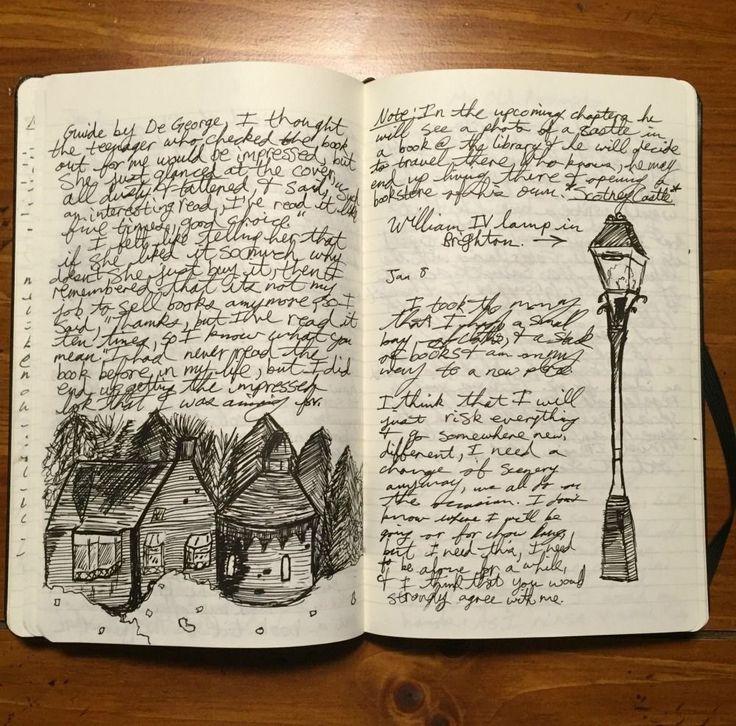 Guide by De George, I thought
the teenager who checked the book
out for me would be impressed, but
she just glanced at the cover,
all dusty & tattered, & said, "Such
an interesting read, I've read it like
five times, good choice."
I felt like telling her that
if she liked it so much why
doesn't she just buy it, then I
remembered that its not my
job to sell books anymore, so I
said "Thanks, but I've read it
ten times, so I know what you
mean" I had never read the
book before in my life, but I did
end up getting the impressed
look that I was aiming for.
Note: In the upcoming chapters he
will see a photo of a castle in
a book @ the library & he will decide
to travel there, who knows, he may
end up living there & opening a
bookstore of his own. *Scotney Castle*
William IV lamp in
Brighton. →
Jan 8
I took the money
that I a small
bag, of clothes, & a stack
of books & am on my
way to a new place
I think that I will
just risk everything
& go somewhere new,
different, I need a
change of scenery
anyway, we all do on
the occasion. I don't
know where I will be
going or for how long,
but I need this, I need
to be alone for a while,
& I think that you would
strongly agree with me.